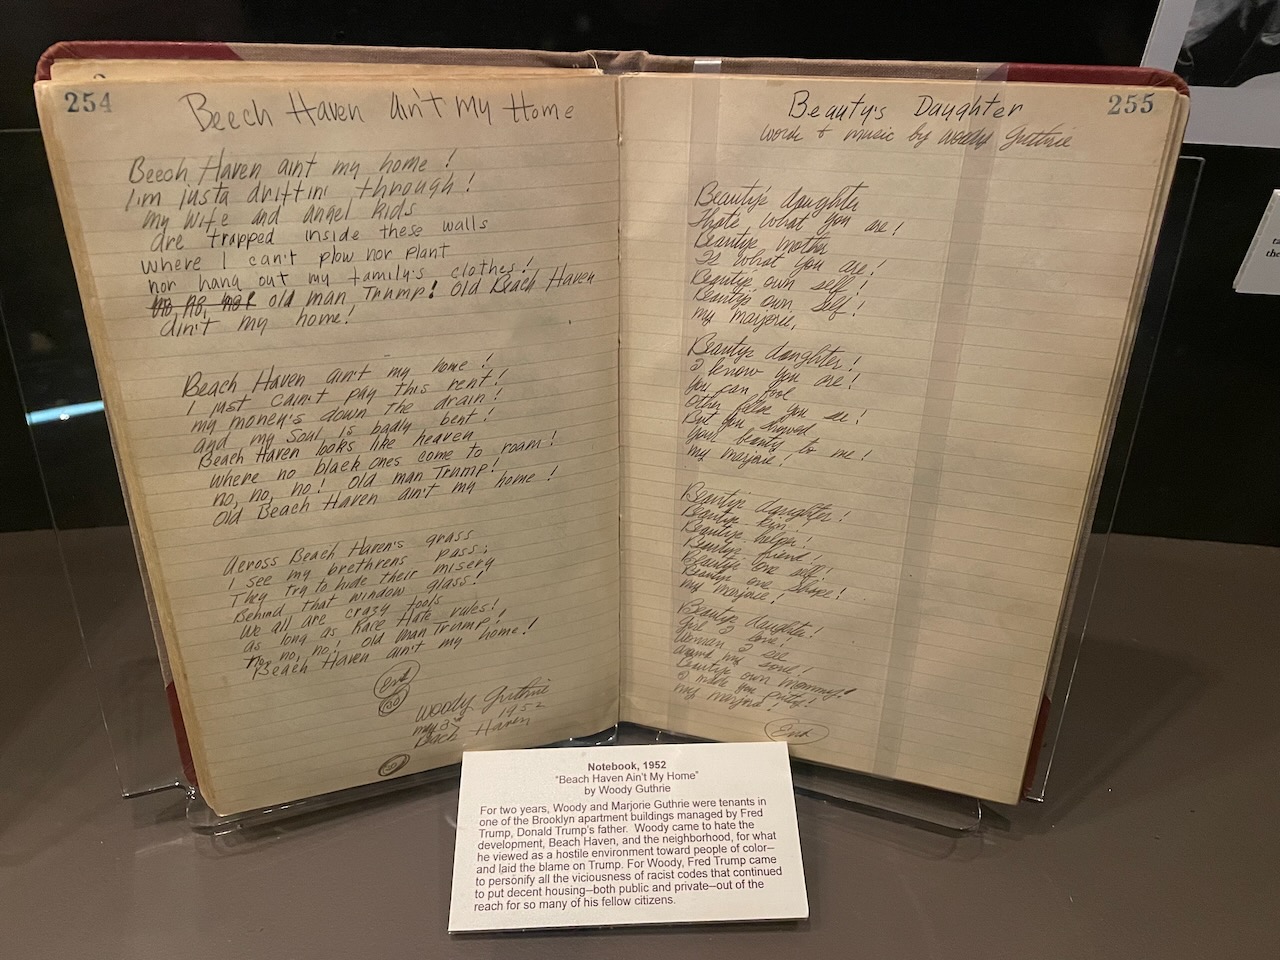 254
Beech Haven ain't my Home
Beech Haven aint my home!
I'm justa driftin' through!
my wife and angel kids
are trapped inside these walls
where I can't plow nor plant
nor hang out my family's clothes!
no, no, no! old man Trump! Old Beach Haven
ain't my home!
Beach Haven ain't my home!
I just cain't pay this rent!
my money's down the drain!
and my soul is badly bent!
Beach Haven looks like heaven
where no black ones come to roam!
no, no, no! Old man Trump!
Old Beach Haven ain't my home!
Across Beach Haven's grass
I see my brethrens pass;
They try to hide their misery
Behind that window glass!
We all are crazy fools
as long as Race Hate rules!
no, no, no, Old man Trump!
Beach Haven ain't my home!
End
Woody Guthrie
1952
Beach Haven
255
Beauty's Daughter
words + music by Woody Guthrie
Beauty's daughter
Thats what you are!
Beautys mother
Is what you are!
Beautys own self!
Beautys own self!
my marjorie,
Beautys daughter!
I know you are!
You can fool
Other fellas you see!
But you showed
your beauty to me!
my marjorie!
Beautys daughter!
Beautys kin
Beautys helper!
Beautys friend!
Beautys one self!
Beautys one shape!
my marjorie!
Beautys daughter!
Girl I love!
Woman I see
my soul!
Beautys own mommy!
I made you pretty!
my marjorie!
End
Notebook, 1952
"Beach Haven Ain't My Home"
by Woody Guthrie
For two years, Woody and Marjorie Guthrie were tenants in
one of the Brooklyn apartment buildings managed by Fred
Trump, Donald Trump's father. Woody came to hate the
development, Beach Haven, and the neighborhood, for what
he viewed as a hostile environment toward people of color—
and laid the blame on Trump. For Woody, Fred Trump came
to personify all the viciousness of racist codes that continued
to put decent housing—both public and private—out of the
reach for so many of his fellow citizens.